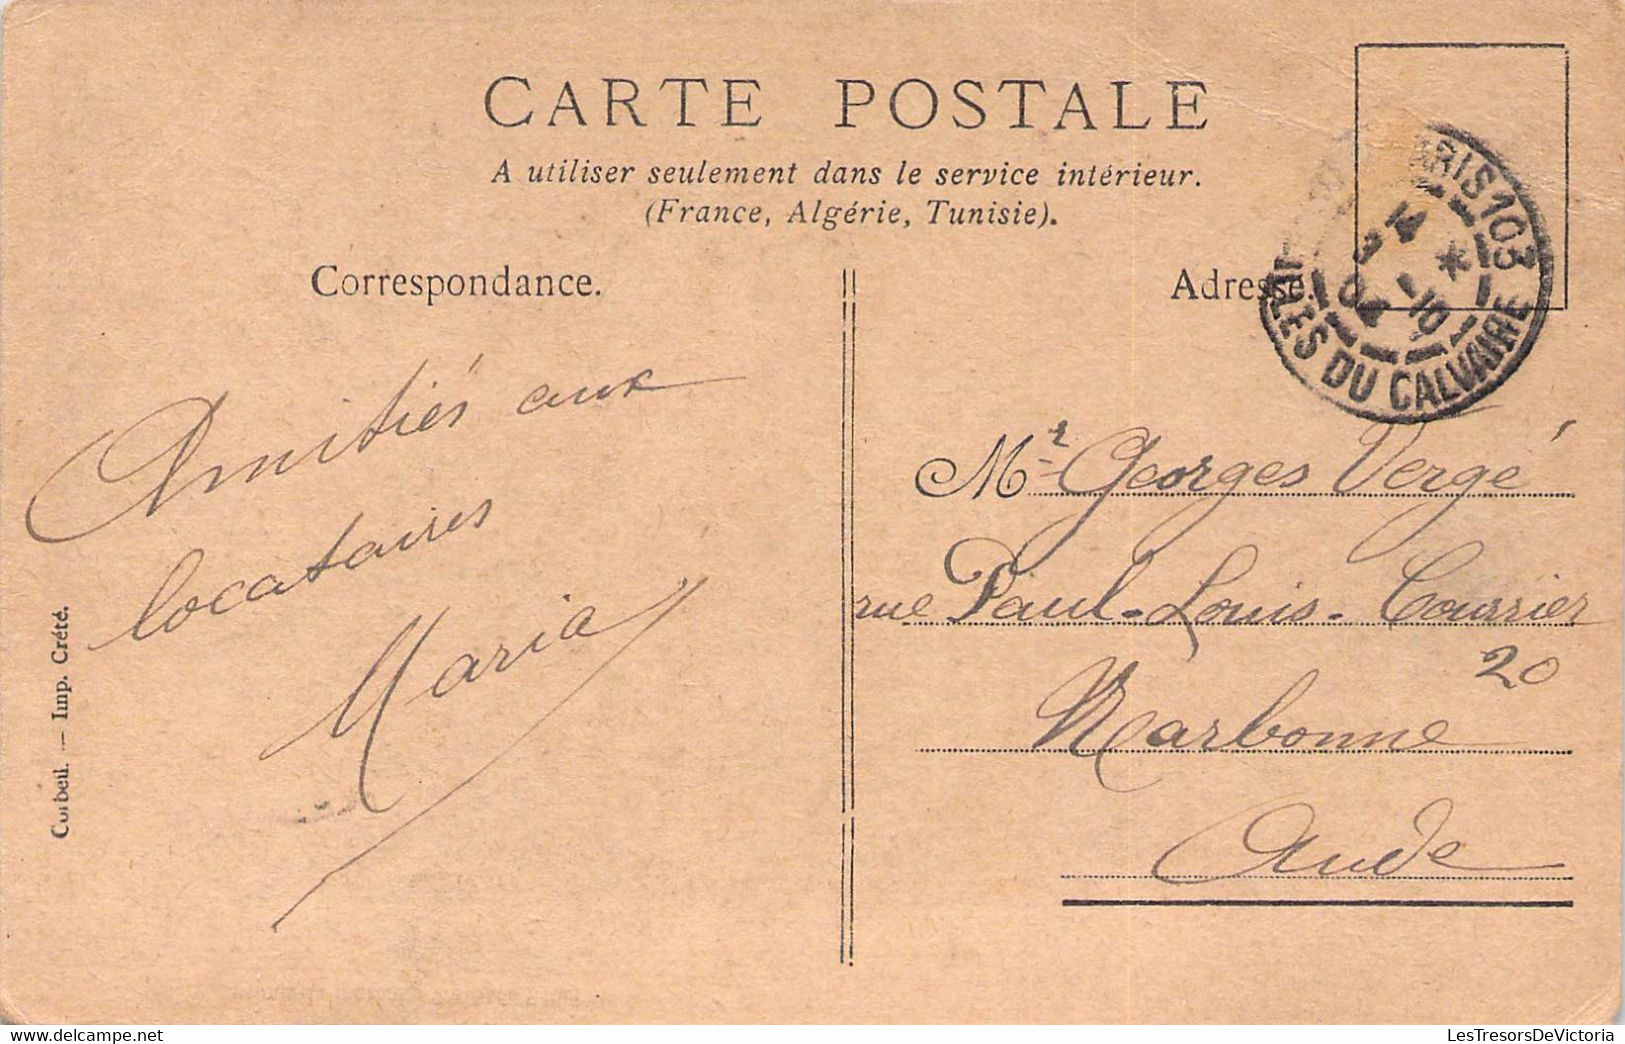 CARTE POSTALE
A utiliser seulement dans le service intérieur.
(France, Algérie, Tunisie).
Correspondance.
Adresse.
PARIS 103
LES DU CALVAIRE
14
04
10
Amitiés aux
locataires
Maria
Mr Georges Vergé
rue Paul-Louis-Courrier
20
Narbonne
Aude
Corbeil. — Imp. Crété.
LesTresorsDeVictoria